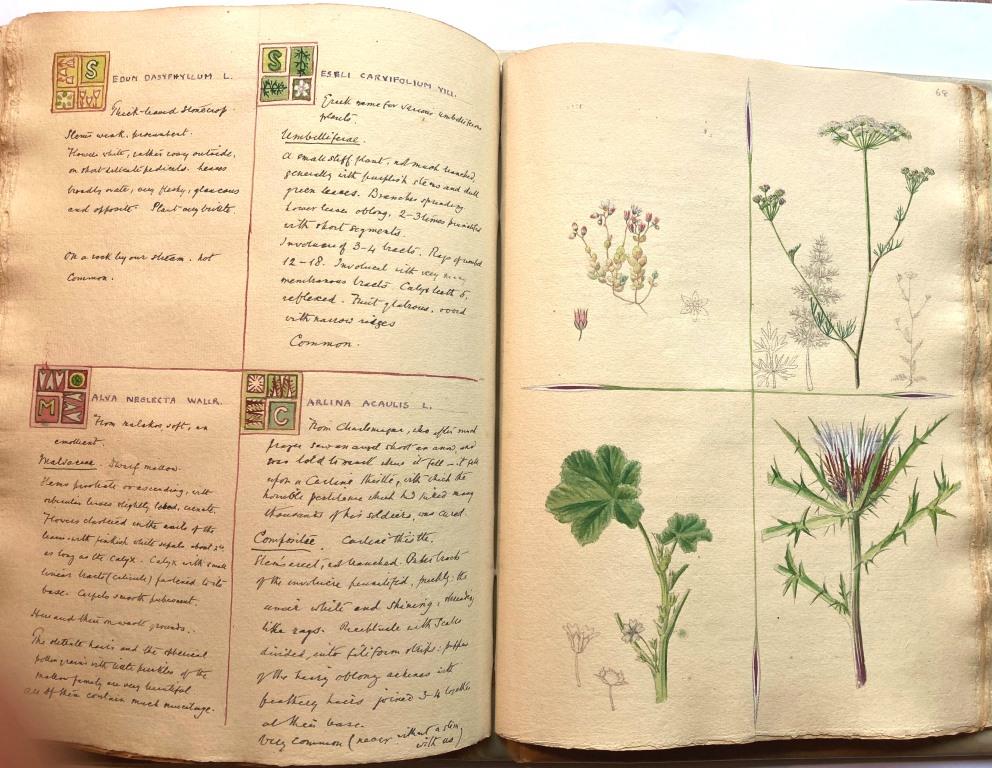 SEDUM DASYPHYLLUM L.
Thick-leaved stonecrop.
Stems weak, procumbent.
Flowers white, rather rosy outside,
on short delicate pedicels. Leaves
broadly ovate, very fleshy, glaucous
and opposite. Plant very brittle.
On a rock by our stream. Not
common.
SESELI CARVIFOLIUM VILL.
Greek name for various umbelliferous
plants.
Umbelliferae.
A small stiff plant, not much branched,
generally with purplish stems and dull
green leaves. Branches spreading.
Lower leaves oblong, 2-3 times pinnatifid
with short segments.
Involucre of 3-4 bracts. Rays of umbel
12-18. Involucel with very many
membranous bracts. Calyx teeth 5,
reflexed. Fruit glabrous, ovoid
with narrow ridges
Common.
MALVA NEGLECTA WALLR.
From malakos, soft, an
emollient.
Malvaceae. Dwarf mallow.
Stems prostrate or ascending, with
orbicular leaves slightly lobed, crenate.
Flowers clustered in the axils of the
leaves with pinkish white sepals about 3x
as long as the calyx. Calyx with small
linear bracts (epicalyx) fastened to its
base. Carpels smooth pubescent.
Here and there on waste grounds.
The delicate hairs and the spherical
pollen grains with little prickles of the
mallow family are very beautiful
All of them contain much mucilage.
CARLINA ACAULIS L.
From Charlemagne, who after much
prayer saw an angel shoot an arrow, and
was told to mark where it fell - it fell
upon a Carline thistle, with which the
horrible pestilence which had killed many
thousands of his soldiers, was cured.
Compositae. Carline thistle.
Stem erect, not branched. Outer bracts
of the involucre pinnatifid, prickly: the
inner white and shining, spreading
like rays. Receptacle with scales
divided into filiform strips: pappus
of the hairy oblong achenes with
feathery hairs joined 3-4 together
at their base.
Very common (never without a stem
with us)
68